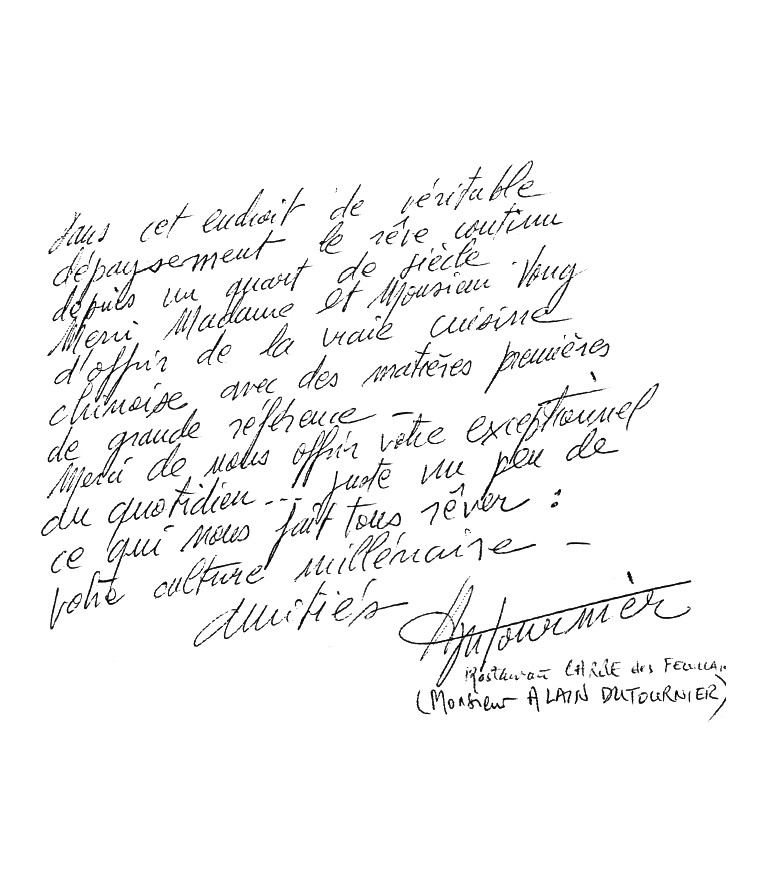 Dans cet endroit de véritable
dépaysement le rêve continu
depuis un quart de siècle
Merci Madame et Monsieur Vong
d'offrir de la vraie cuisine
chinoise avec des matières premières
de grande référence -
Merci de nous offrir votre exceptionnel
du quotidien... juste un peu de
ce qui nous fait tous rêver :
votre culture millénaire -
Amitiés
ADutournier
Restaurant CARRE des FEUILLAN
(Monsieur ALAIN DUTOURNIER)